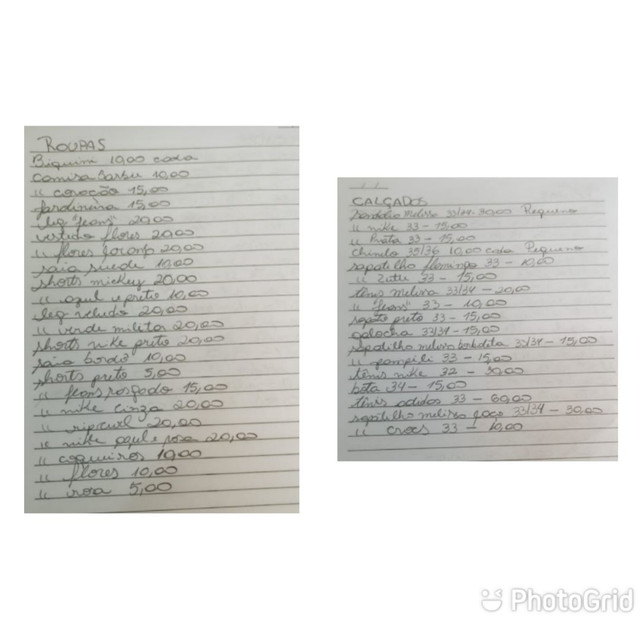 ROUPAS
Biquini 10,00 cada
camisa Barbie 10,00
" coração 15,00
Jardineira 15,00
leg "jeans" 20,00
vestido flores 20,00
" flores laranja 20,00
saia suede 10,00
shorts mickey 20,00
" azul e preto 10,00
leg veludo 20,00
" verde militar 20,00
shorts nike preto 20,00
saia bordô 10,00
shorts preto 5,00
" jeans rasgado 15,00
" nike cinza 20,00
" ripcurl 20,00
" nike azul e rosa 20,00
" coqueiros 10,00
" flores 10,00
" rosa 5,00
CALÇADOS
Sandália melissa 33/34 - Pequeno
" nike 33 - 15,00
" 33 - 15,00
chinelo 35/36 10,00 cada Pequeno
sapatilha 33 - 10,00
" 33 - 15,00
tênis melissa 33/34 - 20,00
" "jeans" 33 - 10,00
sapato preto 33 - 15,00
galocha 33/34 - 15,00
sapatilha melissa 33/34 - 15,00
" pampili 33 - 15,00
tênis nike 32 - 30,00
bota 34 - 15,00
tênis adidas 33 - 60,00
sapatilha melissa 33/34 - 30,00
" crocs 33 - 10,00
PhotoGrid